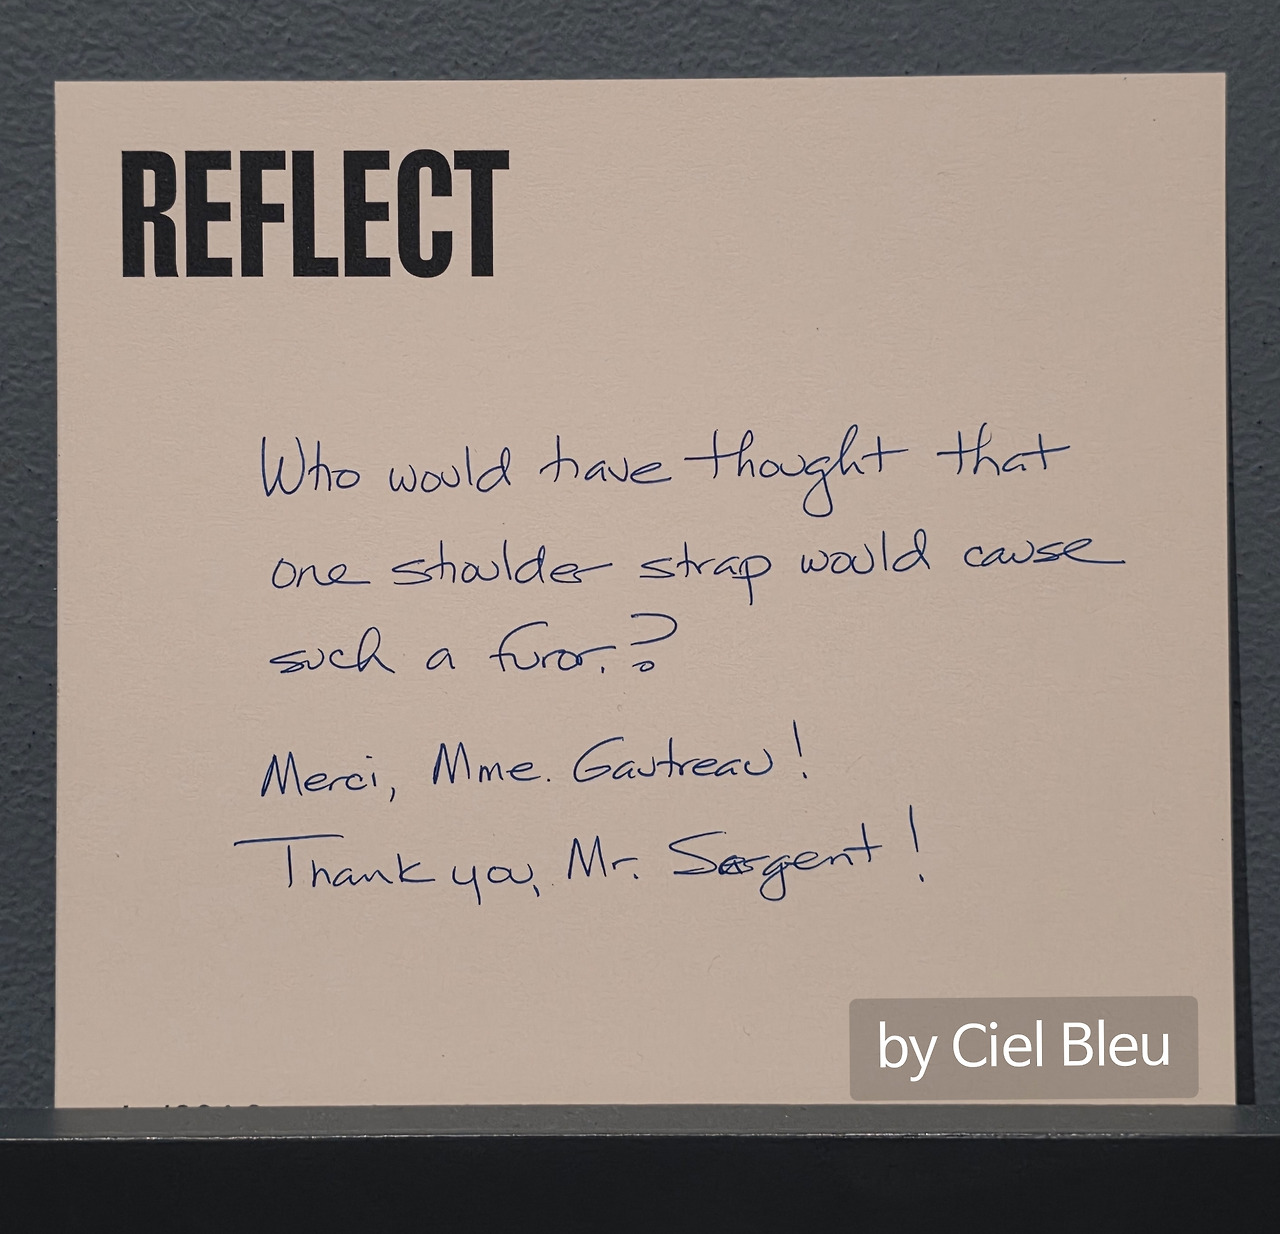 REFLECT
Who would have thought that
one shoulder strap would cause
such a furor.?
Merci, Mme. Gautreau!
Thank you, Mr. Sargent!
by Ciel Bleu